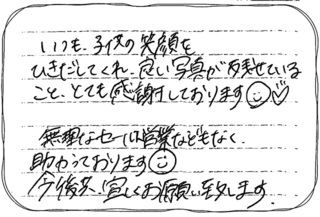 いつも、子供の笑顔を
ひきだしてくれ、良い写真が残せている
こと、とても感謝しております☺♡
無理なセールス営業などもなく、
助かっております☺
今後共、宜しくお願い致します。